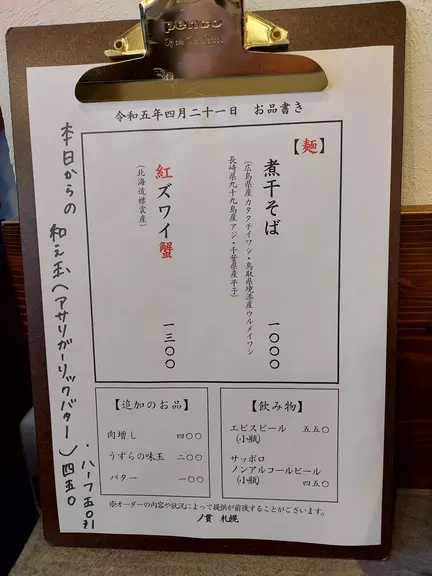 penco
令和五年四月二十一日　お品書き
【麺】
煮干そば　一〇〇〇
(広島県産カタクチイワシ・鳥取県境港産ウルメイワシ
長崎県九十九島産アジ・千葉県産平子)
紅ズワイ蟹　一三〇〇
(北海道標雲産)
【飲み物】
エビスビール　五五〇
(小瓶)
サッポロ
ノンアルコールビール
(小瓶)　四五〇
【追加のお品】
肉増し　四〇〇
うずらの味玉　二〇〇
バター　一〇〇
※オーダーの内容や状況によって提供が前後することがございます。
ノ貫　札幌
本日からの 和え玉(アサリガーリックバター)四五〇
・ハーフ五〇